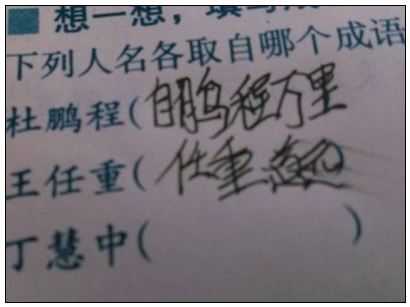 想一想，填
下列人名各取自哪个成语
杜鹏程(自鹏程万里
王任重(任重道远)
丁慧中(          )